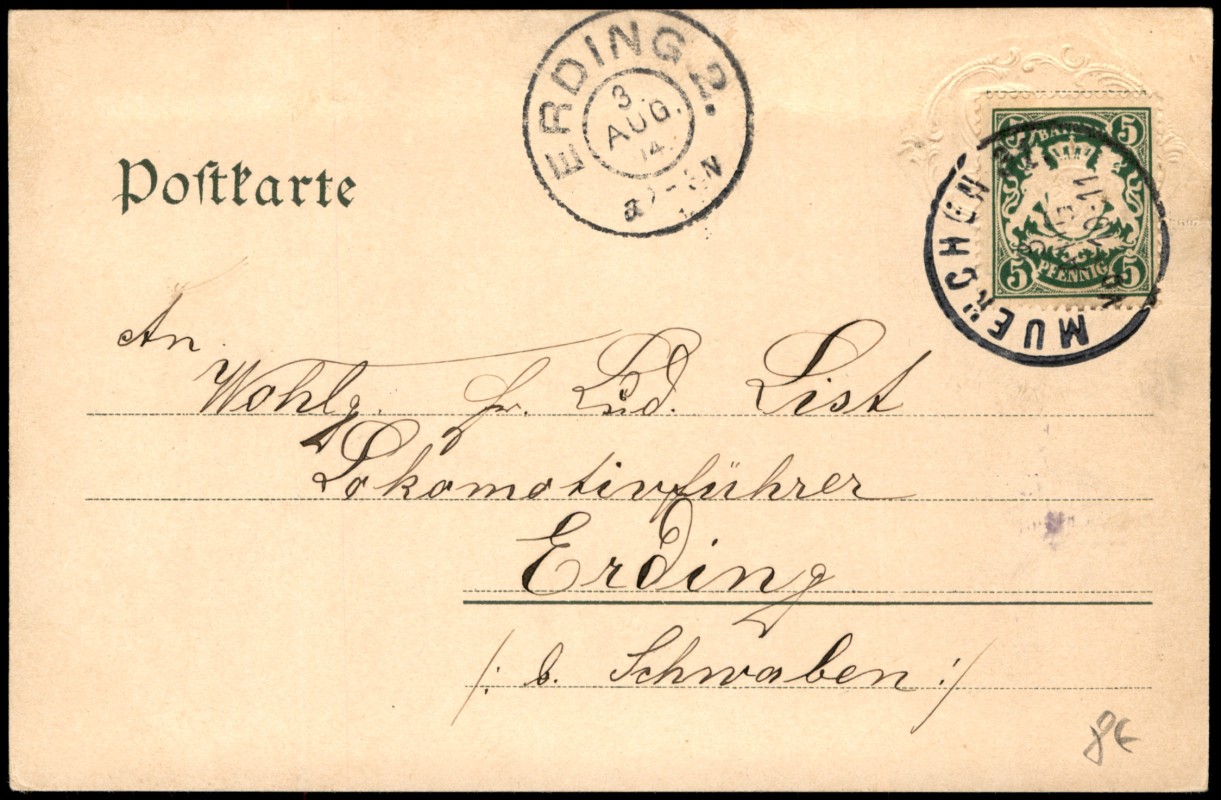 ERDING 2.
3
AUG.
14
5 BAYERN 5
5 PFENNIG 5
MUENCHEN
Poſtkarte
An
Wohlg. Hr. Lud. List
Lokomotivführer
Erding
/: b. Schwaben :/
8€